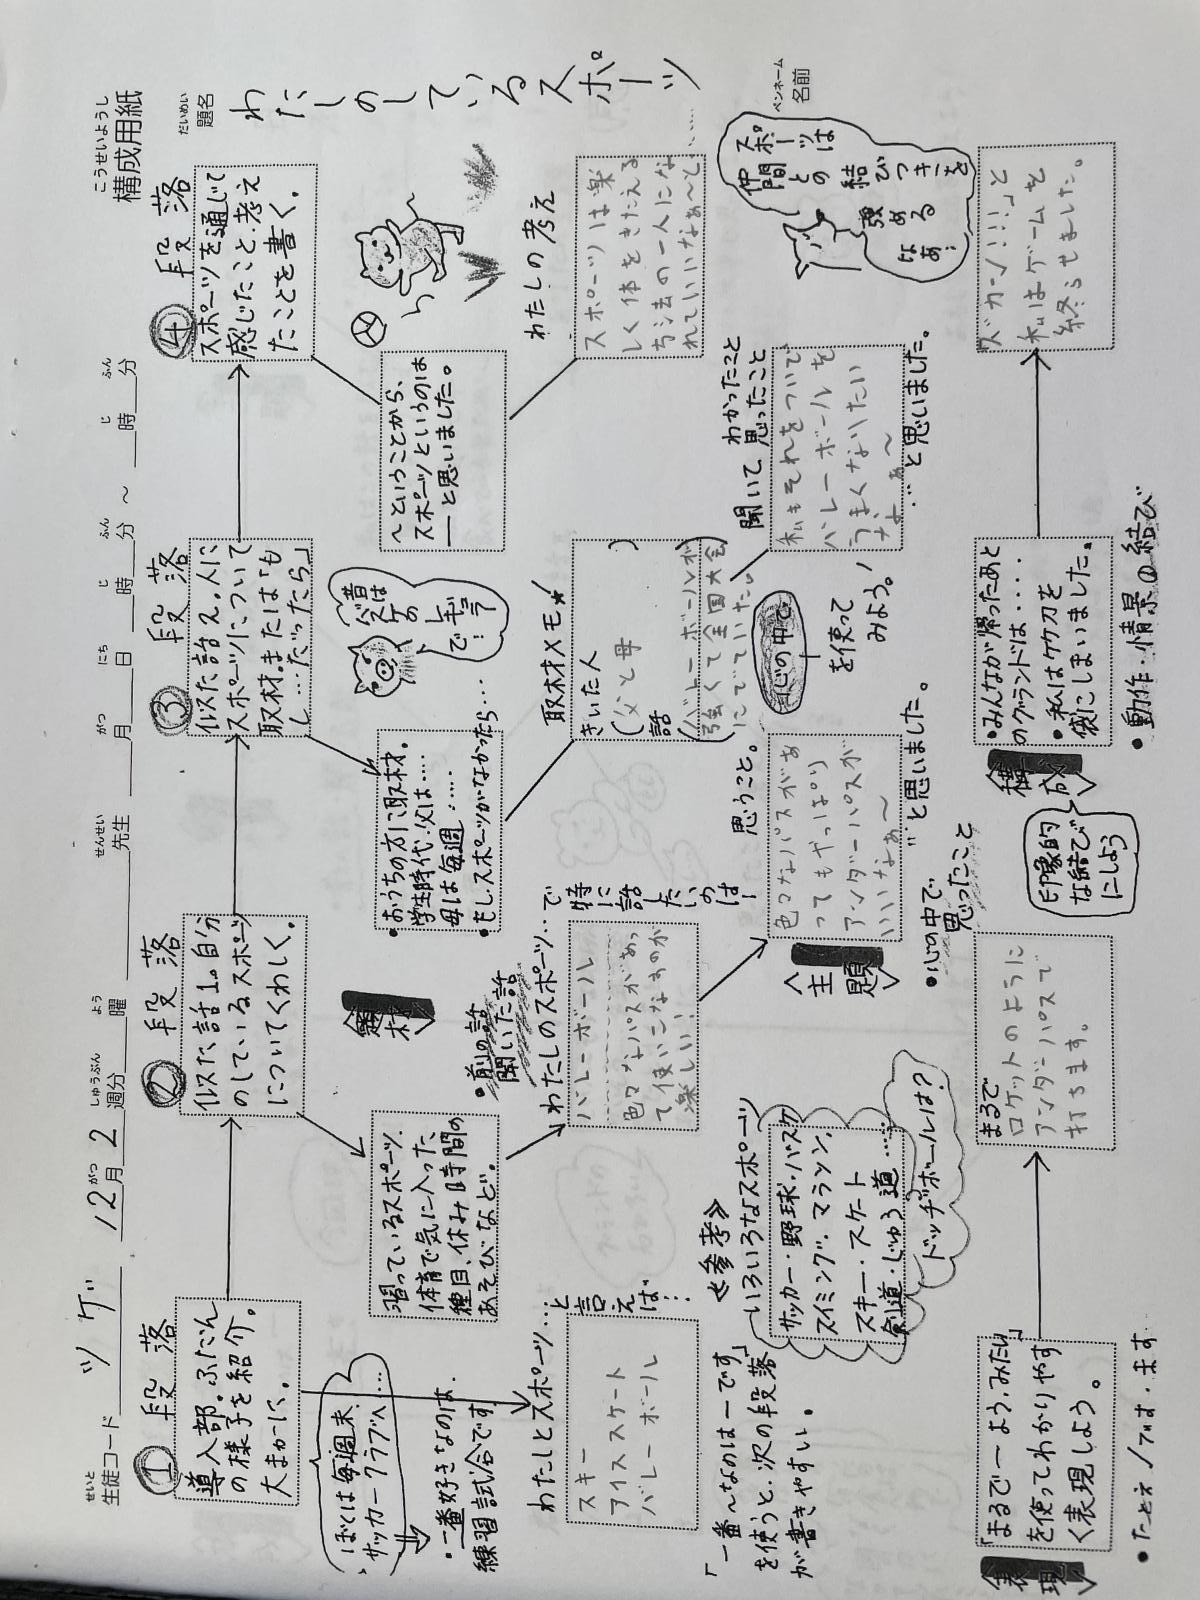 構成用紙
こうせいようし
生徒コード ツゲ 12月2週分 曜 先生 月 日 時 分 ～ 時 分
せいと がつ しゅうぶん よう せんせい がつ にち じ ふん じ ふん
題名
だいめい
わたしのしているスポーツ
名前
ペンネーム
①段落
導入部。ふだん
の様子を紹介。
大まかに。
②段落
似た話1。自分
のしているスポーツ
についてくわしく。
③段落
似た話え。人に
スポーツについて
取材または「も
し…だったら」
④段落
スポーツを通じて
感じたこと・考え
たことを書く。
ぼくは毎週末、
サッカークラブへ…
・一番好きなのは、
練習試合です
習っているスポーツ、
体育で気に入った
種目、休み時間の
あそびなど。
〈題材〉
・前の話
聞いた話
・おうちの方に取材。
学生時代・父は……
母は毎週……
・もしスポーツがなかったら…
昔は
バスケの
レギュラー
で…
～ということから、
スポーツというのは
―と思いました。
わたしとスポーツ…
と言えば…
スキー
アイススケート
バレーボール
わたしのスポーツ…で
特に話したいのは…
バレーボール
色々なパスがあっ
て使いこなすのが
楽しい！
取材メモ★
きいた人
（父と母）
話
（バレーボールが
強くて全国大会
にでていた。）
わたしの考え
スポーツは楽
しく体をきたえる
方法の一人にな
れていいなぁ～と……
「一番～なのは―です」
を使うと、次の段落
が書きやすい。
≪参考≫
いろいろなスポーツ
サッカー・野球・バスケ
スイミング・マラソン、
スキー・スケート
剣道・じゅう道……
ドッヂボールは？
〈主題〉
思うこと。
色々なパスがあ
ってもやっぱり
アンダーパスが
いいなぁ～
…と思いました。
・心の中で
思ったこと
心の中で
を使って
みよう。！
聞いて、わかったこと
思ったこと
私もそれをついで
バレーボールを
うまくなりたい
なぁ～
…と思いました。
スポーツは
仲間との
結びつきを
強める
なあ…
〈表現〉
「まるで―よう、みたい」
を使ってわかりやす
く表現しよう。
・たとえ／です・ます
まるで
ロケットのように
アンダーパスで
打ちます。
印象的
な結び
にしよう
〈構成〉
・みんなが帰ったあと
のグランドは・・・・
・私は竹刀を
袋にしまいました。
・動作・情景の結び
ズカーン！！！」と
私はゲームを
終らせました。